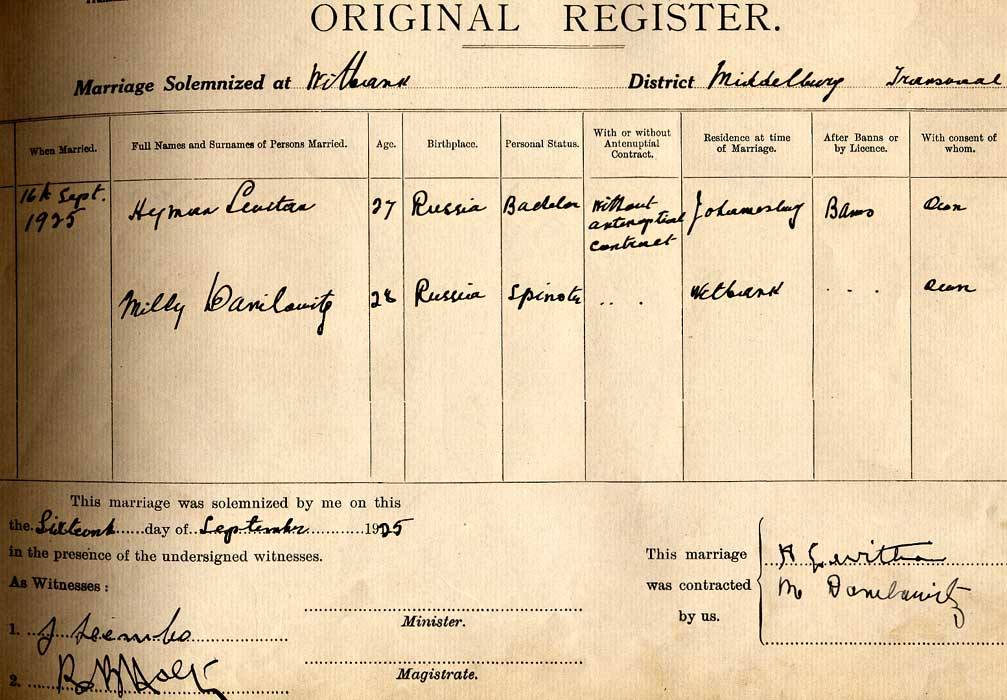 ORIGINAL REGISTER.
Marriage Solemnized at Witbank District Middelburg Transvaal
When Married. Full Names and Surnames of Persons Married. Age. Birthplace. Personal Status. With or without Antenuptial Contract. Residence at time of Marriage. After Banns or by Licence. With consent of whom.
16th Sept. 1925 Hyman Levitan 27 Russia Bachelor Without antenuptial contract Johannesburg Banns Own
Milly Danilowitz 28 Russia Spinster .. . Witbank . . . Own
This marriage was solemnized by me on this
the Sixteenth day of September 1925
in the presence of the undersigned witnesses.
As Witnesses :
1. J
2.
Minister.
Magistrate.
This marriage
was contracted
by us.
H Levithan
M Danilowitz